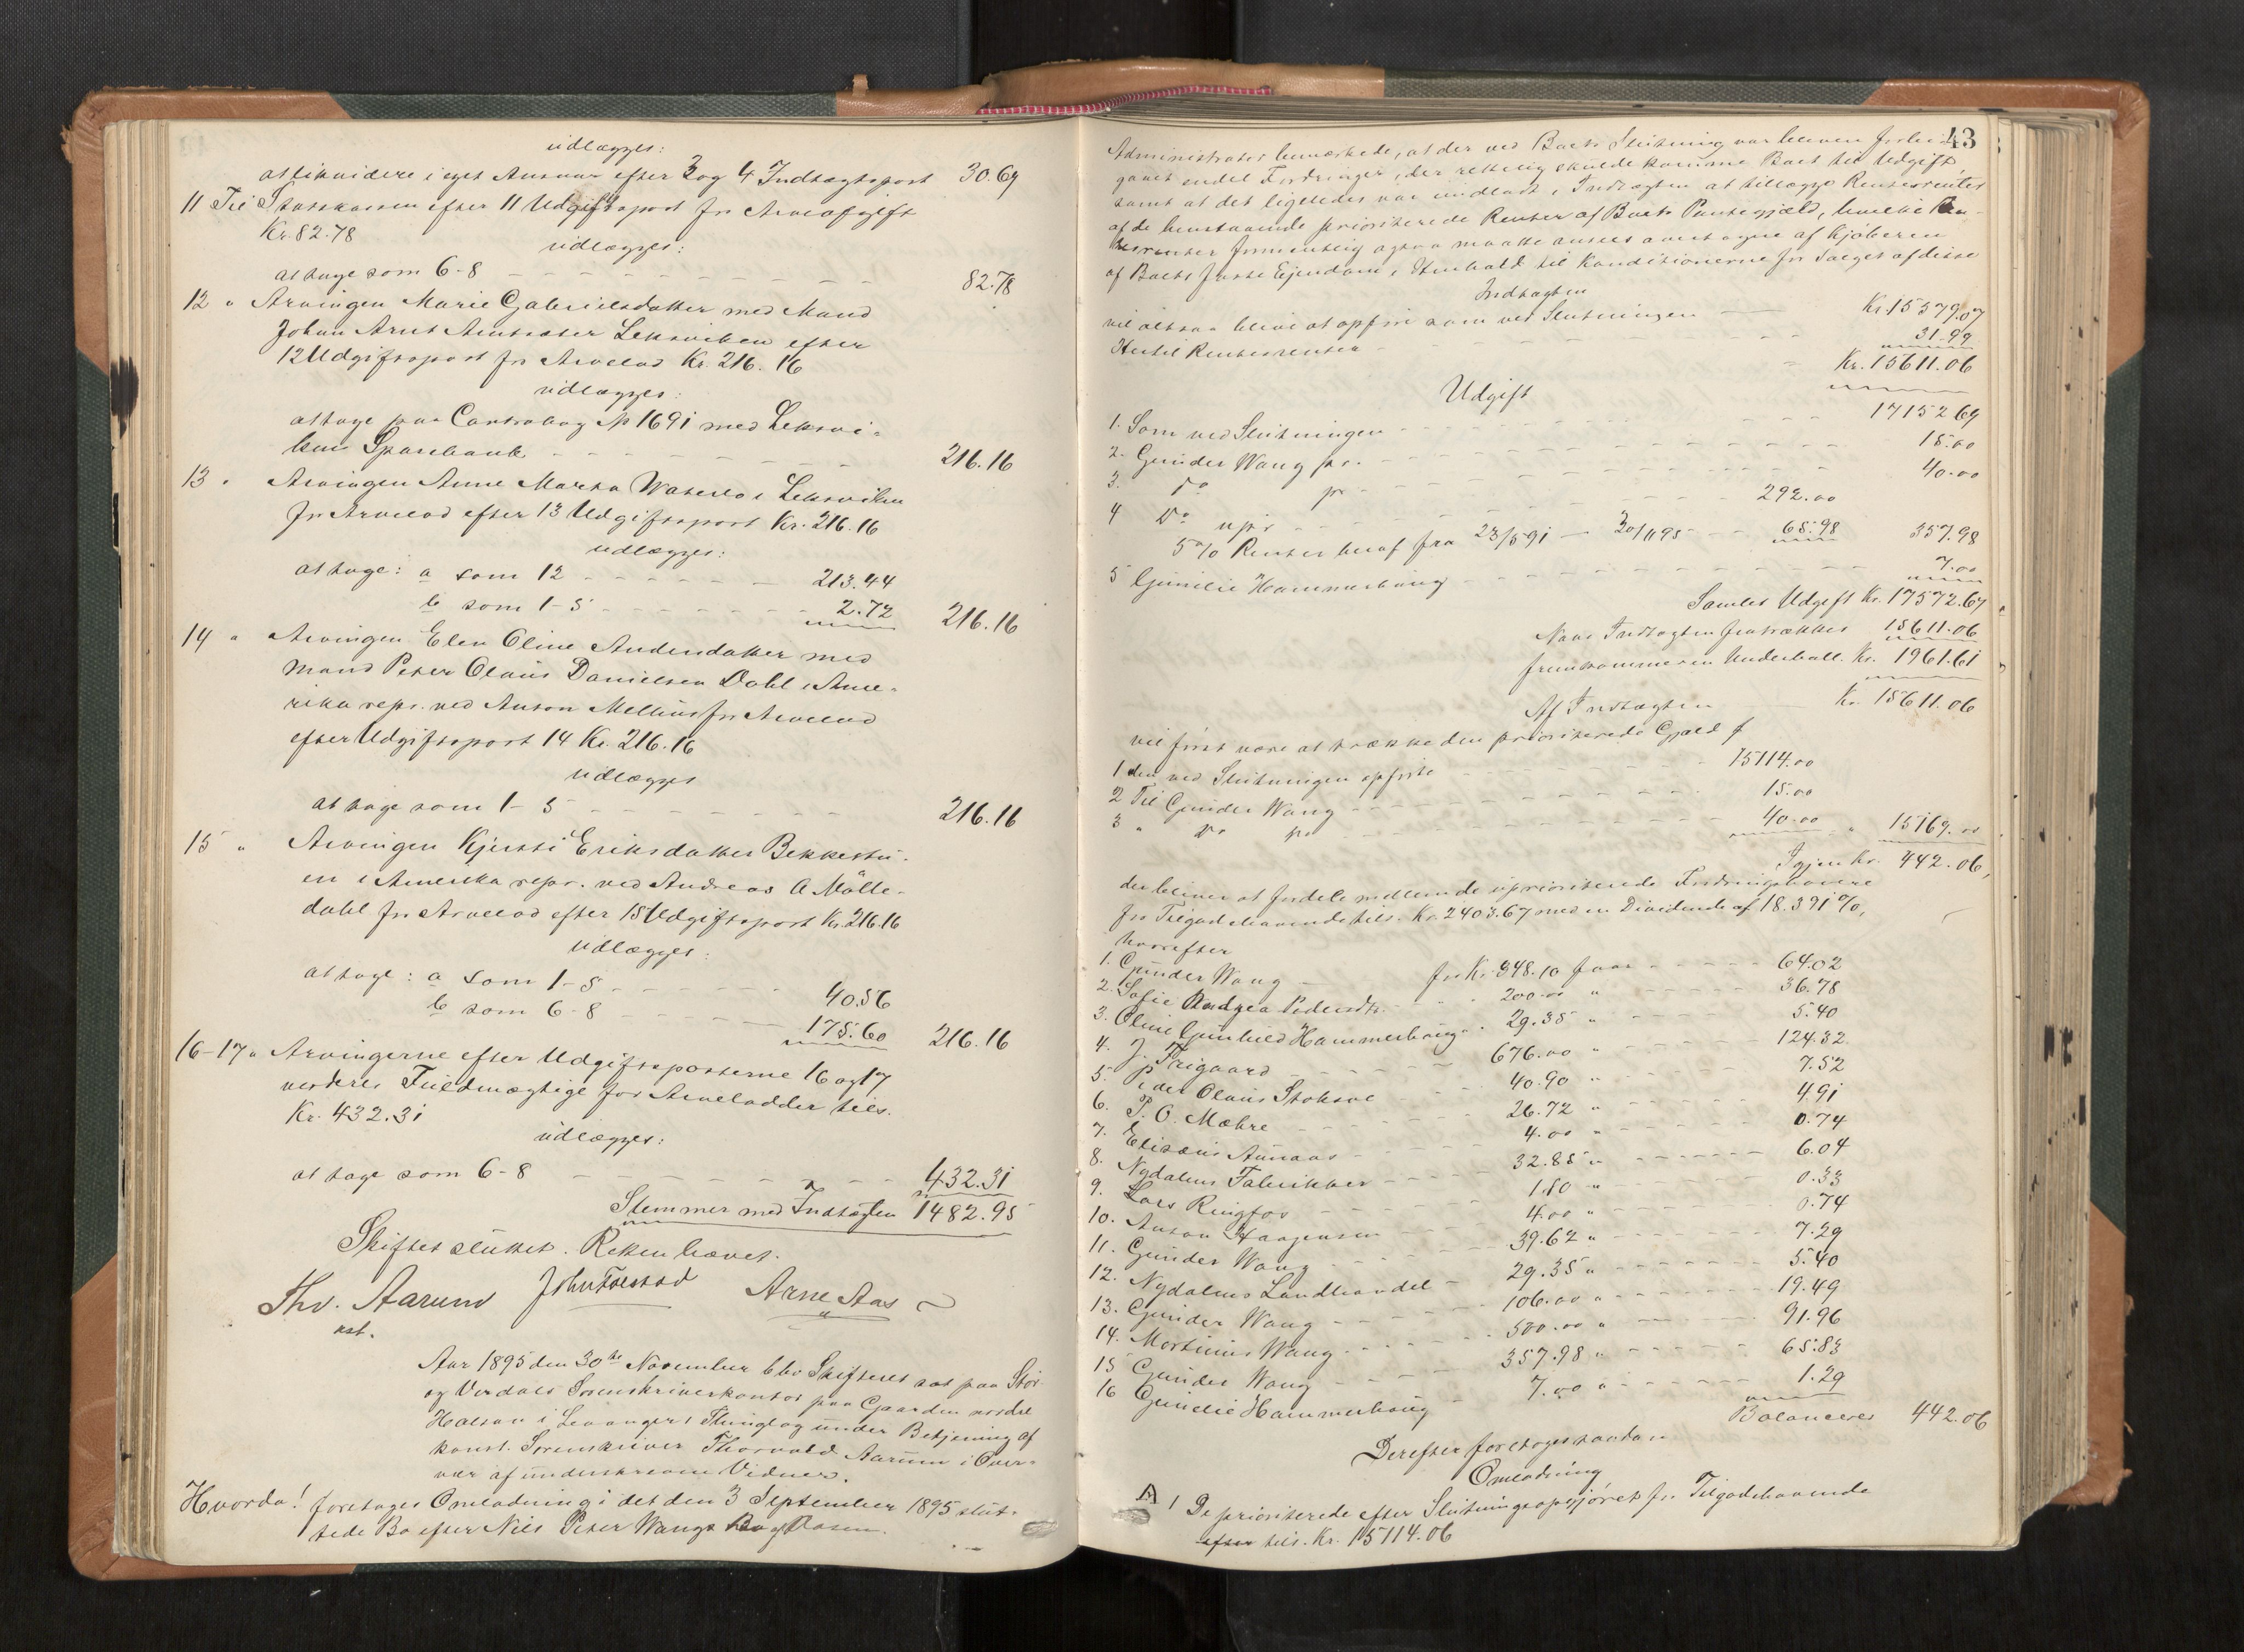 udlægges:
at likvidere i eget Ansvar efter 3 og 4 Indtægtspost 30.69
11 Til Statskassen efter 11 Udgiftspost for Arveafgift
Kr. 82.78
udlægges:
at tage som 6-8 82.78
12 " Arvingen Marie Gabrielsdatter med Mand
Johan Arnt Arntsater Leksviken efter
12 Udgiftspost for Arvelod Kr. 216.16
udlægges:
at tage paa Contrabog № 1691 med Leksvi-
kens Sparebank 216.16
13 " Arvingen Anne Marta Watersø i Leksviken
for Arvelod efter 13 Udgiftspost Kr. 216.16
udlægges:
at tage: a som 12 213.44
b som 1-5 2.72 216.16
14 " Arvingen Elen Oline Andersdatter med
Mand Peter Olaus Danielsen Dahl i Ame-
rika repr. ved Anton Mellius for Arvelod
efter Udgiftspost 14 Kr. 216.16
udlægges
at tage som 1-5 216.16
15 " Arvingen Kjersti Eriksdatter Bekkestu-
en i Amerika repr. ved Andreas A Mölle-
dahl for Arvelod efter 15 Udgiftspost Kr. 216.16
udlægges:
at tage: a som 1-5 40.56
b som 6-8 175.60 216.16
16-17 " Arvingerne efter Udgiftsposterne 16 og 17
ved deres Fuldmægtige for Arvelodder tils.
Kr. 432.31
udlægges:
at tage som 6-8 432.31
Stemmer med Indtægten 1482.95
Skiftet sluttet. Retten hævet.
Thv. Aarum John Tolstad Arne Aas
kst.
Aar 1895 den 30te November blev Skifteret sat paa Stör-
og Verdals Sorenskriverkontor paa Gaarden nordre
Halsan i Levanger Thinglag under Betjening af
konst. Sorenskriver Thorvald Aarum i Over-
vær af underskrevne Vidner.
Hvorda! foretoges Omlodning i det den 3 September 1895 slut-
tede Bo efter Nils Peter Wangs Bo af Rosen.
43
Administrator bemærkede, at der ved Boets Slutning var bleven forbi-
gaaet endel Fordringer, der rettelig skulde komme Boet til Udgift,
samt at det ligeledes var undladt i Indtægten at tillægge Rentesrenter
af de henstaaende prioriterede Renter af Boets Pantegjæld, hvilke Ren-
tesrenter formentlig ogsaa maatte ansees overtagne af Kjøberen
af Boets faste Ejendom i Henhold til Konditionerne for Salget af disse
Indtægten
vil altsaa blive at opføre som ved Slutningen Kr. 15579.07
Hertil Rentesrenter 31.99
Kr. 15611.06
Udgift
1. Som ved Slutningen 17152.69
2. Gunder Wang pr. 15.00
3. Do pr 40.00
4 Do upr 292.00
5% Renter heraf fra 23/5 91 — 30/11 95 65.98 357.98
5 Gunelie Hammerhaug 7.00
Samlet Udgift Kr. 17572.67
Naar Indtægten fratrækkes 15611.06
fremkommer en Underball. Kr. 1961.61
Af Indtægten Kr. 15611.06
vil først være at trække den prioriterede Gjæld
1 den ved Slutningen opførte 15114.00
2 Til Gunder Wang 15.00
3 " Do pr 40.00 " 15169.00
Igjen kr. 442.06,
der bliver at fordele mellem de uprioriterede Fordringshavere
for Tilgodehavende tils. Kr. 2403.67 med en Dividende af 18.391%,
hvorefter
1. Gunder Wang for Kr. 348.10 faar 64.02
2. Sofie Andrea Pedersdtr. 200.00 " 36.78
3. Oline Gunhild Hammerhaug 29.35 " 5.40
4. J. Trigaard 676.00 " 124.32
5. Peder Olaus Stoksve 40.90 " 7.52
6. P. O. Mæhre 26.72 " 4.91
7. Elisæus Aunaas 4.00 " 0.74
8. Nydalens Fabrikker 32.85 " 6.04
9. Lars Ringfos 1.80 " 0.33
10. Anton Haagensen 4.00 " 0.74
11. Gunder Wang 39.62 " 7.29
12. Nydalens Landhandel 29.35 " 5.40
13. Gunder Wang 106.00 " 19.49
14. Mortinus Wang 500.00 " 91.96
15 Gunder Wang 357.98 " 65.83
16 Gunelie Hammerhaug 7.00 " 1.29
Balancerer 442.06
Derefter foretoges saadan
Omlodning
A 1 De prioriterede efter Slutningsopgjøret for Tilgodehavende
efter tils. Kr. 15114.06